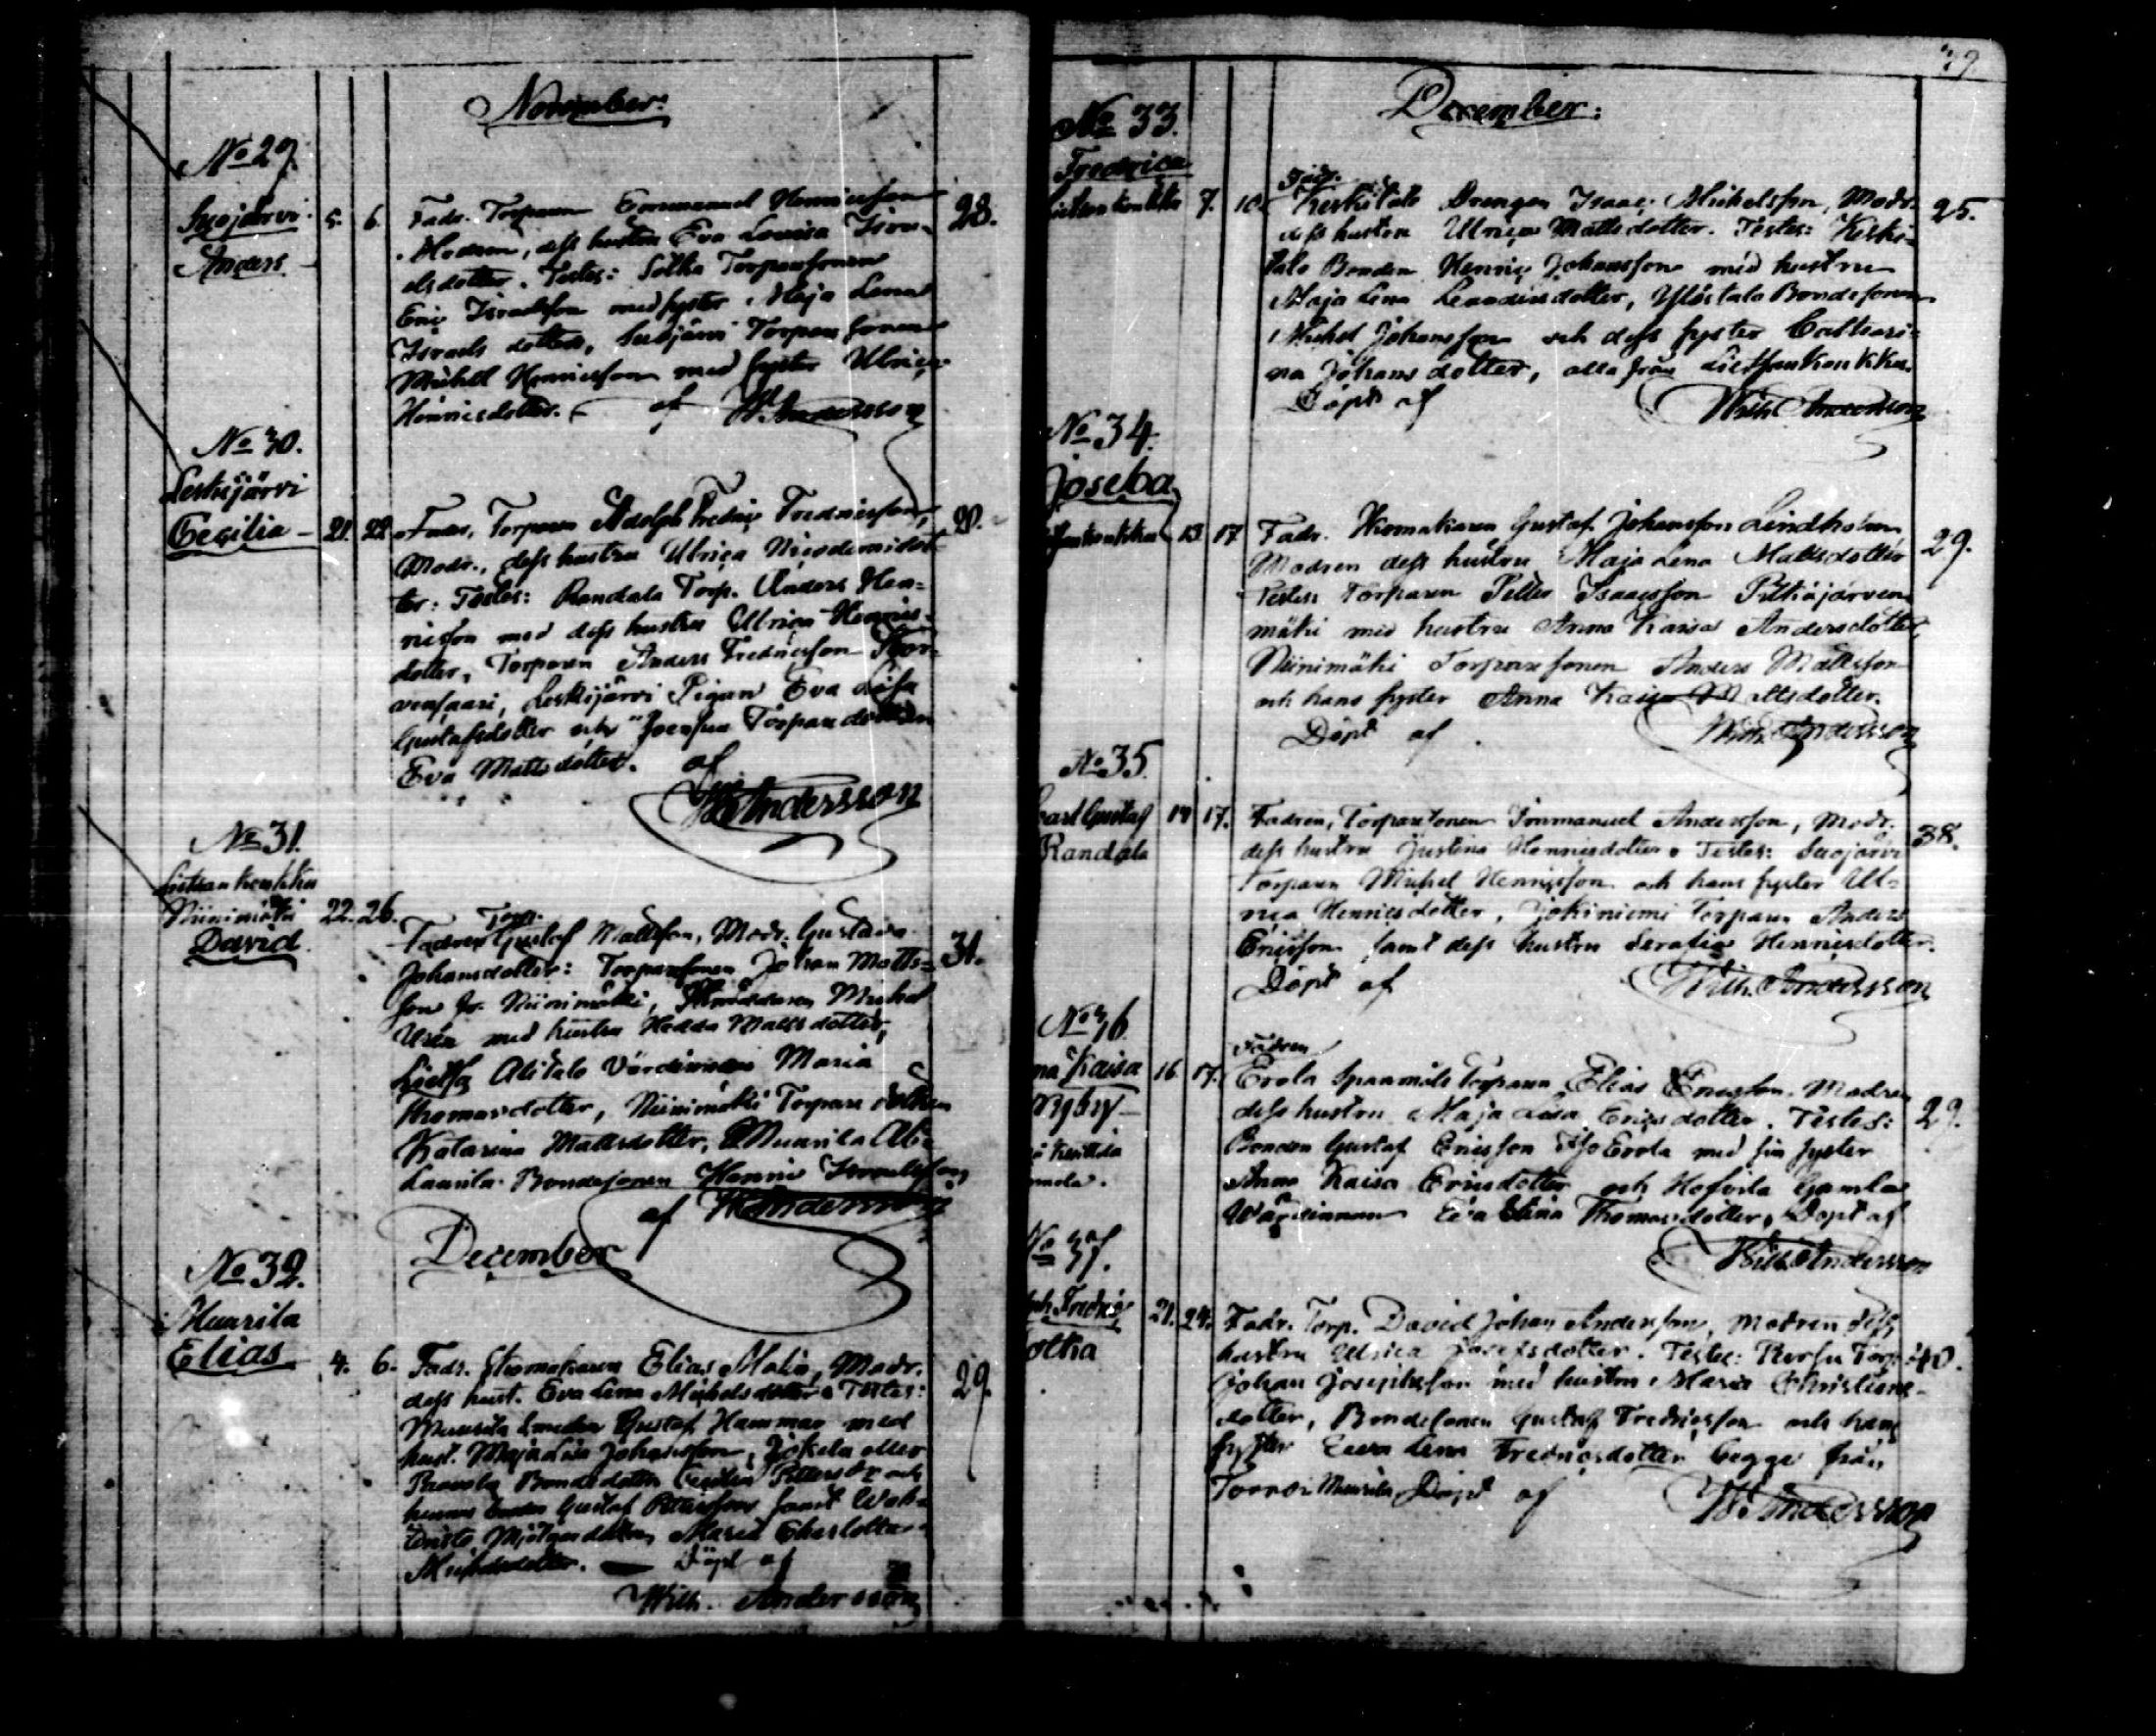 November:
No 29.
Suojärvi
Anders
5. 6.
Fadr. Torparen Emmanuel Henricsson
Modren, dess hustru Eva Lovisa Isra-
elsdotter. Testes: Sotka Torparesonen
Eric Israelsson med syster Maja Lena
Israels dotter, Suojärvi Torpare sonen
Michel Henricsson med syster Ulrica
Henricsdotter. af W. Andersson
28.
No 30.
Leskijärvi
Cecilia
21. 22.
Fadr. Torparen Adolph Fredric Fredricsson,
Modr., dess hustru Ulrica Nicodemidot-
ter: Testes: Randala Torp. Anders Hen-
ricsson med dess hustru Ulrica Henrics-
dotter, Torparen Anders Fredricsson
Leskijärvi Pigan Eva Lisa
Gustafsdotter och Joensuu Torpare dottren
Eva Mattsdotter. af
W. Andersson
No 31.
Lietsankonkka
Niinimäki
David
22. 26.
Torp.
Fadren Gustaf Mattsson, Modr. Gustava
Johansdotter: Torparesonen Johan Matts-
son fr. Niinimäki, Michel
med hustru Hedda Mattsdotter,
Alitalo Värdinnan Maria
Thomasdotter, Niinimäki Torpare dottren
Katarina Mattsdotter, Muurila Ali-
Laurila Bondesonen Henric Israelsson
af W. Andersson
31.
December
No 32.
Muurila
Elias
4. 6.
Fadr. Skomakaren Elias Malin, Modr.
dess hust. Eva Lena Michelsdotter. Testes:
Muurila Smeden Gustaf Hammar med
hust. Maja Lisa Johansson, Jokela eller
Bondedotter Cecilia Petters dr och
hennes Gustaf Pettersson samt
Maria Charlotta
Michelsdotter. Döpt af
Wilh. Andersson
29.
39
December:
No 33.
Fredrica
Lietsankonkka
7. 10.
Fadr.
Keskitalo Drengen Isaac Michelsson, Modr.
dess hustru Ulrica Mattsdotter. Testes: Keski-
talo Bonden Henric Johansson med hustru
Maja Lena Leandersdotter, Ylöstalo Bondesonen
Michel Johansson och dess syster Cathari-
na Johans dotter, alla från Lietsankonkka.
Döpt af Wilh. Andersson
25.
No 34.
Joseba
13 17
Fadr. Skomakaren Gustaf Johansson Lindholm
Modren dess hustru Maja Lena Mattsdotter
Testes: Torparen Petter Isaacsson Pitkäjärven
mäki med hustru Anna Kaisa Andersdotter,
Niinimäki Torparesonen Anders Mattsson
och hans syster Anna Kaisa Mattsdotter.
Döpt af Wilh. Andersson
29.
No 35.
Carl Gustaf
Randala
14 17.
Fadren, Torparesonen Immanuel Andersson, Modr.
dess hustru Justina Henricsdotter. Testes: Suojärvi
Torparen Michel Henricsson och hans syster Ul-
rica Henricsdotter, Jokiniemi Torparen Anders
Ericsson samt dess hustru Serafia Henricsdotter.
Döpt af Wilh. Andersson
38.
No 36
na Kaisa
16 17.
Fadren
Erola Spanmåls Torparen Elias Ericsson. Modren
dess hustru Maja Lisa Erics dotter. Testes:
Bonden Gustaf Ericsson Iso Erola med sin syster
Anna Kaisa Ericsdotter och Hofvila Gamla
Wärdinnan Eva Stina Thomasdotter, Döpt af
Wilh. Andersson
29.
No 37.
ph Fredric
otka
21. 24.
Fadr. Torp. David Johan Andersson, Modren dess
hustru Ulrica Josefsdotter. Testes: Torp.
Johan Josephsson med hustru Maria Christians-
dotter, Bondesonen Gustaf Fredricsson och hans
syster Eeva Lena Fredricsdotter begge från
Muurila Döpt af W. Andersson
40.